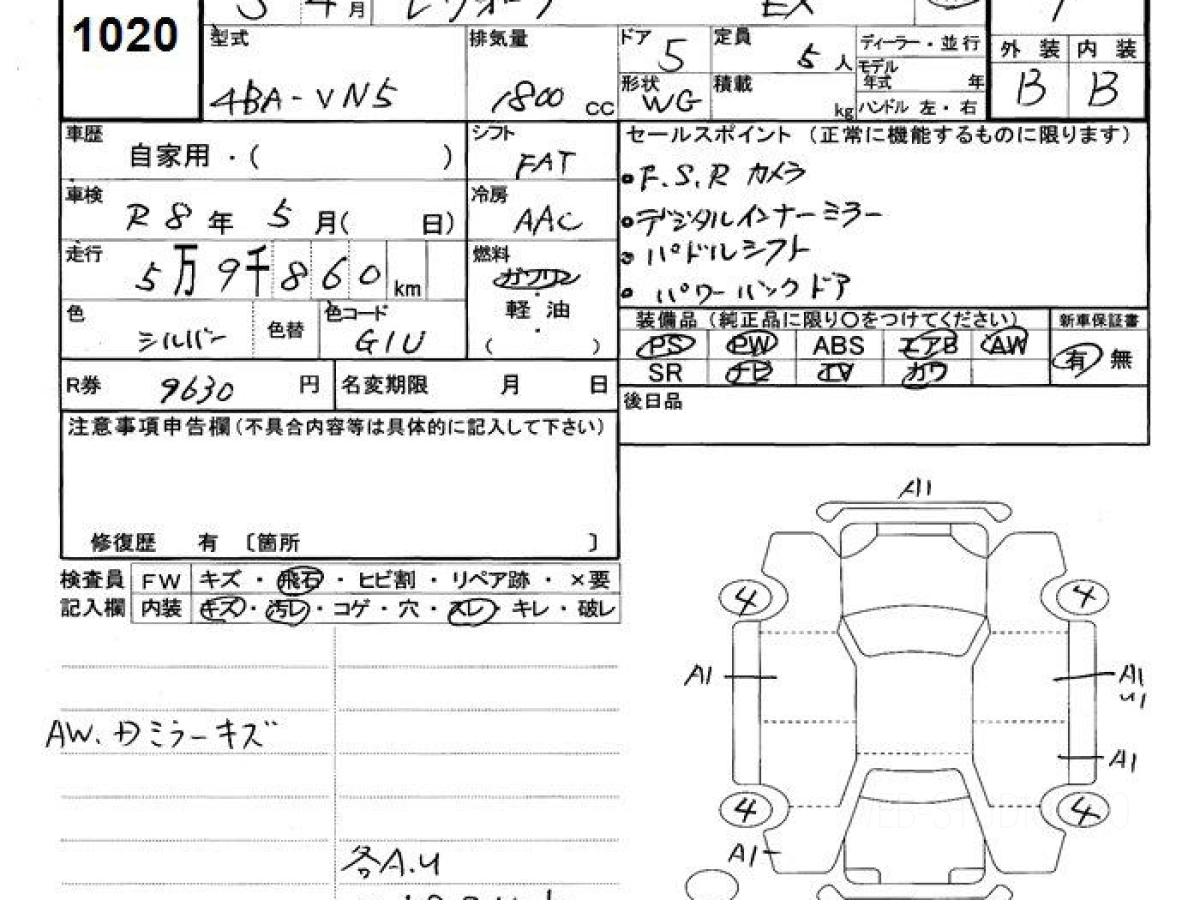 3 4月 レヴォーグ EX
1020
型式 4BA-VN5
排気量 1800 cc
ドア 5
定員 5 人
形状 WG
積載 kg
ディーラー・並行
モデル年式 年
ハンドル 左・右
外装 内装
B B
車歴 自家用・( )
シフト FAT
車検 R8年 5月( 日)
冷房 AAC
走行 5万9千860 km
燃料 ガソリン
軽・油
( )
色 シルバー
色替
色コード G1U
R券 9630 円
名変期限 月 日
セールスポイント（正常に機能するものに限ります）
・F.S.R カメラ
・デジタルインナーミラー
・パドルシフト
・パワーバックドア
装備品（純正品に限り○をつけてください）
新車保証書
PS PW ABS エアB AW
有 無
SR ナビ TV カワ
後日品
注意事項申告欄(不具合内容等は具体的に記入して下さい)
修復歴 有 〔箇所 〕
検査員 FW キズ・飛石・ヒビ割・リペア跡・×要
記入欄 内装 キズ・汚レ・コゲ・穴・スレ・キレ・破レ
AW.
ミラーキズ
各A.U
A1
4 4
A1
A1
U1
A1
4 4
A1